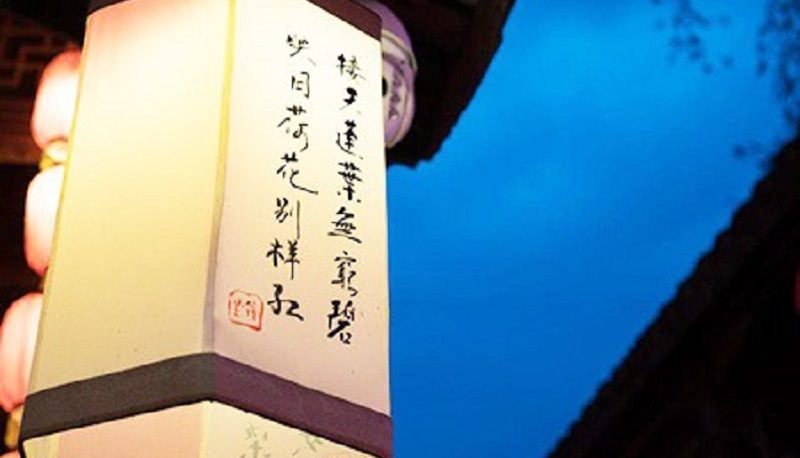 接天蓮葉無窮碧
映日荷花别样紅